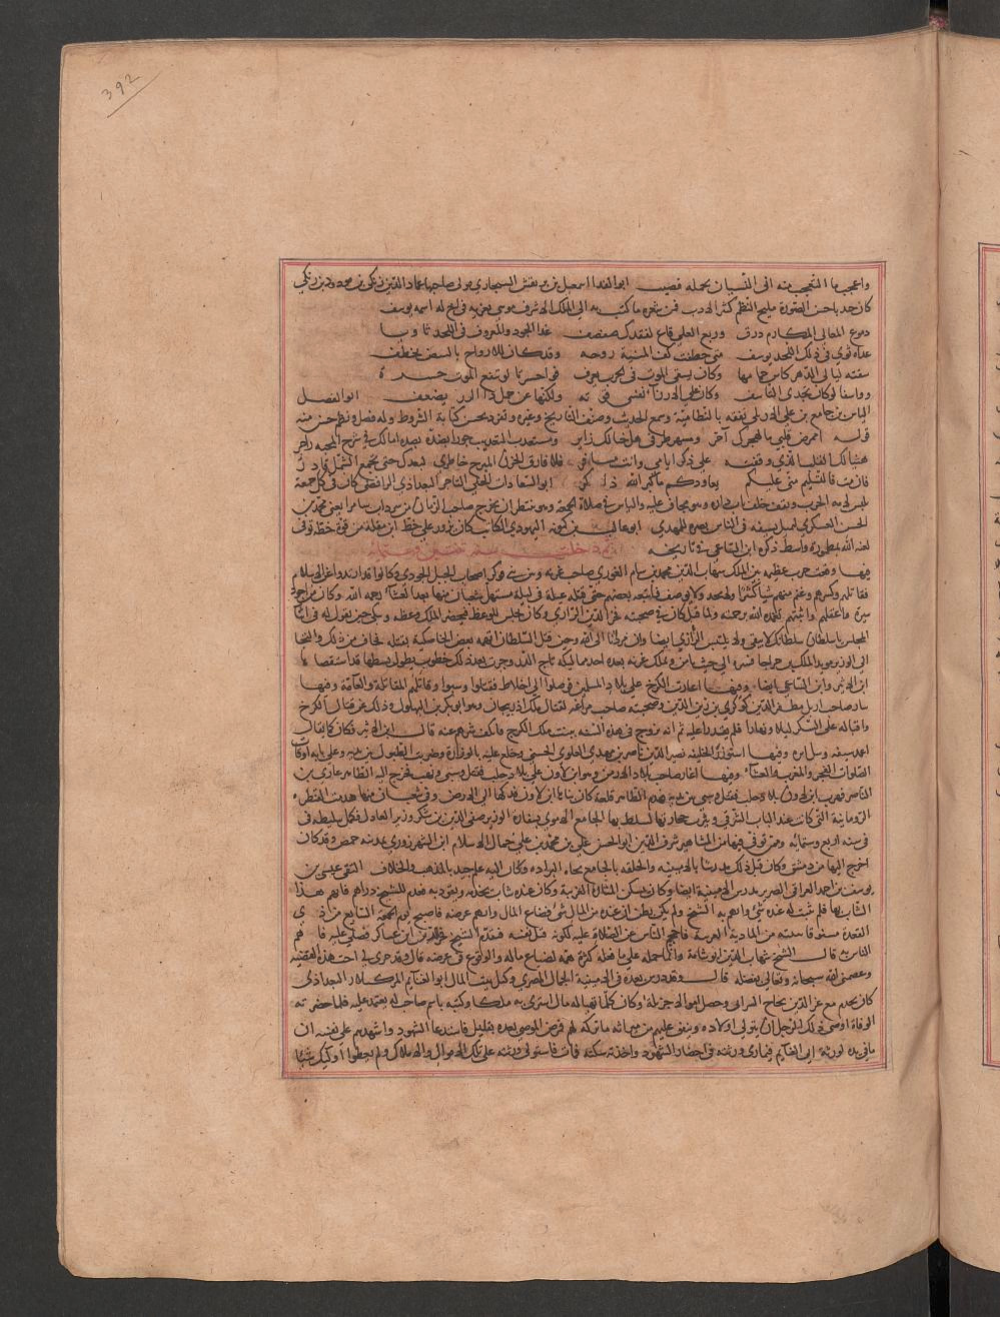 392
واعجب ما التعجب منه انى انسان بجمله فصيب ابو الفدا اسمعيل بن برتقش السنجارى مولى صاحبها عماد الدين زنكى بن مودود بن زنكى
كان جنديا حسن الصورة مليح النظم كثير الادب فمن شعره ما كتب به الى الملك الاشرف موسى يعزيه فى اخ له اسمه يوسف
دموع المعالى والمكارم ذرف وربع العلى قاع لفقدك صفصف غدا الجود والمعروف فى اللحد ثاويا
غداة ثوى فى ذلك اللحد يوسف متى خطفت كف المنية روحه وقد كان للارواح بالسيف يخطف
سقته ليالى الدهر كاس حمامها وكان يسقى الموت فى الحرب يعرف فواحسرتا لو ينفع الموت حسرة
وواسفا لو كان يجدى التاسف وكان على الارزاء نفسى قوية ولكنها عن حمل ذا الرزء يضعف ابو الفضل
الياس بن جامع بن على الاربلى تفقه بالنظامية وسمع الحديث وصنف التاريخ وغيره وتفرد بحسن كتابة الشروط وله فضل ونظم حسن منه
قوله امرض قلبى ما لهجرك آخر ومسهر طرفى هل خيالك زاير ومستعذب التعذيب جورا بصده اما لك فى شرع المحبة زاجر
هنيئا لك القلب الذى وقفته على ذكر ايامى وانت مسافر فلا فارق الحزن المبرح خاطرى لبعدك حتى يجمع الشمل قادر
فان مت فالتسليم منى عليكم يعاودكم ما كبر الله ذاكر ابو السعادات الحلى التاجر البغدادى الرافضى كان فى كل جمعة
يلبس لامة الحرب ويقف خلف باب داره وهو مجاف عليه والناس فى صلاة الجمعة وهو ينتظر ان يخرج صاحب الزمان من سرداب سامرا يعنى محمد بن
الحسن العسكرى ليميل بسيفه فى الناس نصرة للمهدى ابو غالب بن كمونه اليهودى الكاتب كان يزور على خط ابن مقلة من قوة خطه توفى
لعنه الله بمطمورة واسط ذكره ابن الساعى فى تاريخه ثم دخلت سنة وستمائة
فيها وقعت حرب عظيمة بين الملك شهاب الدين محمد بن سام الغورى صاحب غزنة وبين بنى كوكر اصحاب الجبل الجودى وكانوا قد ارتدوا عن الاسلام
فقاتلهم وكسرهم وغنم منهم شيا كثيرا فاتبعه بعضهم حتى قتله غيلة فى ليلة مستهل شعبان منها بعد العشاء رحمه الله وكان من اجود
سيرة واعقلهم واثبتهم تغمده الله برحمته ولما قتل كان فى صحبته فخر الدين الرازى وكان يجلس للوعظ فيحضر الملك وعظه ويبكى حين يقول له فى اثناء
المجلس يا سلطان سلطانك لا يبقى ولا يلبس الرازى ايضا وان مردنا الى الله وحين قتل السلطان اتهمه بعض الخاصكية بقتله فخاف من ذلك والتجا
الى الوزير مويد الملك بن خواجا فسيره الى حيث يامن وتملك غزنة بعده احد مماليكه تاج الدز وجرت بعد ذلك خطوب يطول بسطها قد استقصاها
ابن الاثير وابن الساعى ايضا وفيها اغارت الكرج على بلاد المسلمين فوصلوا الى اخلاط فقتلوا وسبوا وقاتلهم المقاتلة والعامة وفيها
سار صاحب اربل مظفر الدين كوكرى بن زين الدين وصحبته صاحب مراغه لقتال ملك اذربيجان وهو ابو بكر بن البهلول وذلك عن قتال الكرج
واقباله على السكر ليلا ونهارا فلم يقدروا عليه ثم انه تزوج فى هذه السنة بنت ملك الكرج فانكف شرهم عنه قال ابن الاثير فكان كما يقال
اغمد سيفه وسل ايره وفيها استوزر الخليفة نصير الدين ناصر بن مهدى العلوى الحسنى وخلع عليه بالوزارة وضربت الطبول بين يديه وعلى بابه اوقات
الصلوات الفجر والمغرب والعشاء وفيها اغار صاحب بلاد الارمن وهو ابن لاون على بلاد حلب فقتل وسبى ونهب فخرج اليه الظاهر غازى بن
الناصر فهرب ابن لاون بين يديه فهدم الظاهر قلعة كان بناها ابن لاون فدكها الى الارض وفى شعبان منها هدمت القنطرة
الرومانية التى كانت عند الباب الشرقى ونثرت حجارتها ليبلط بها الجامع الاموى بسفارة الوزير صفى الدين بن شكر وزير العادل فكمل تبليطه فى
فى سنة اربع وستمائة وممن توفى فيها من المشاهير شرف الدين ابو الحسن على بن محمد بن على جمال الاسلام ابن الشهرزورى بمدينة حمص وقد كان
اخرج اليها من دمشق وكان قبل ذلك مدرسا بالامينية والحلقة بالجامع تجاه البرادة وكان اليه علم جيد بالمذهب والخلاف التقى عيسى بن
يوسف بن احمد العراقى الضرير مدرس الامينية ايضا وكان يسكن المنارة الغربية وكان عنده شاب يخدمه ويقوده فعدم للشيخ دراهم فاتهم هذا
الشاب بها فلم يثبت له عنده شئ واتهم به الشيخ ولم يكن يظن ان عنده من المال شئ فضاع المال واتهم عرضه فاصبح يوم الجمعة السابع من ذى
القعدة مشنوقا ببيته من الماذنة الغربية فامتنع الناس عن الصلاة عليه لكونه قتل نفسه فتقدم الشيخ فخر الدين ابن عساكر فصلى عليه فائتم
الناس به قال الشيخ شهاب الدين ابو شامة وانما حمله على ما فعله كثرة همه لضياع ماله والوقوع فى عرضه قال وقد جرى لى اخت هذه القضية
وعصمنى الله سبحانه وتعالى بفضله قال وقد درس بعده فى الامينية الجمال المصرى وكيل بيت المال ابو الغنايم المركسلار البغدادى
كان يخدم مع عز الدين نجاح السرابى وحصل اموالا جزيلة وكان كلما تهيا له مال اشترى به ملكا وكتبه باسم صاحب له يعتمد عليه فلما حضرته
الوفاة اوصى ذلك الرجل ان يتولى اولاده وينفق عليهم من ميراثه مما تركه لهم فمرض الموصى بعده بقليل فاستدعا الشهود واشهدهم على نفسه ان
ما فى يده لورثة ابى الغنايم فتمادى ورثته فى احضار الشهود واخذته سكتة فمات فاستولى ورثته على تلك الاموال والاملاك ولم يعطوا اولئك شيئا